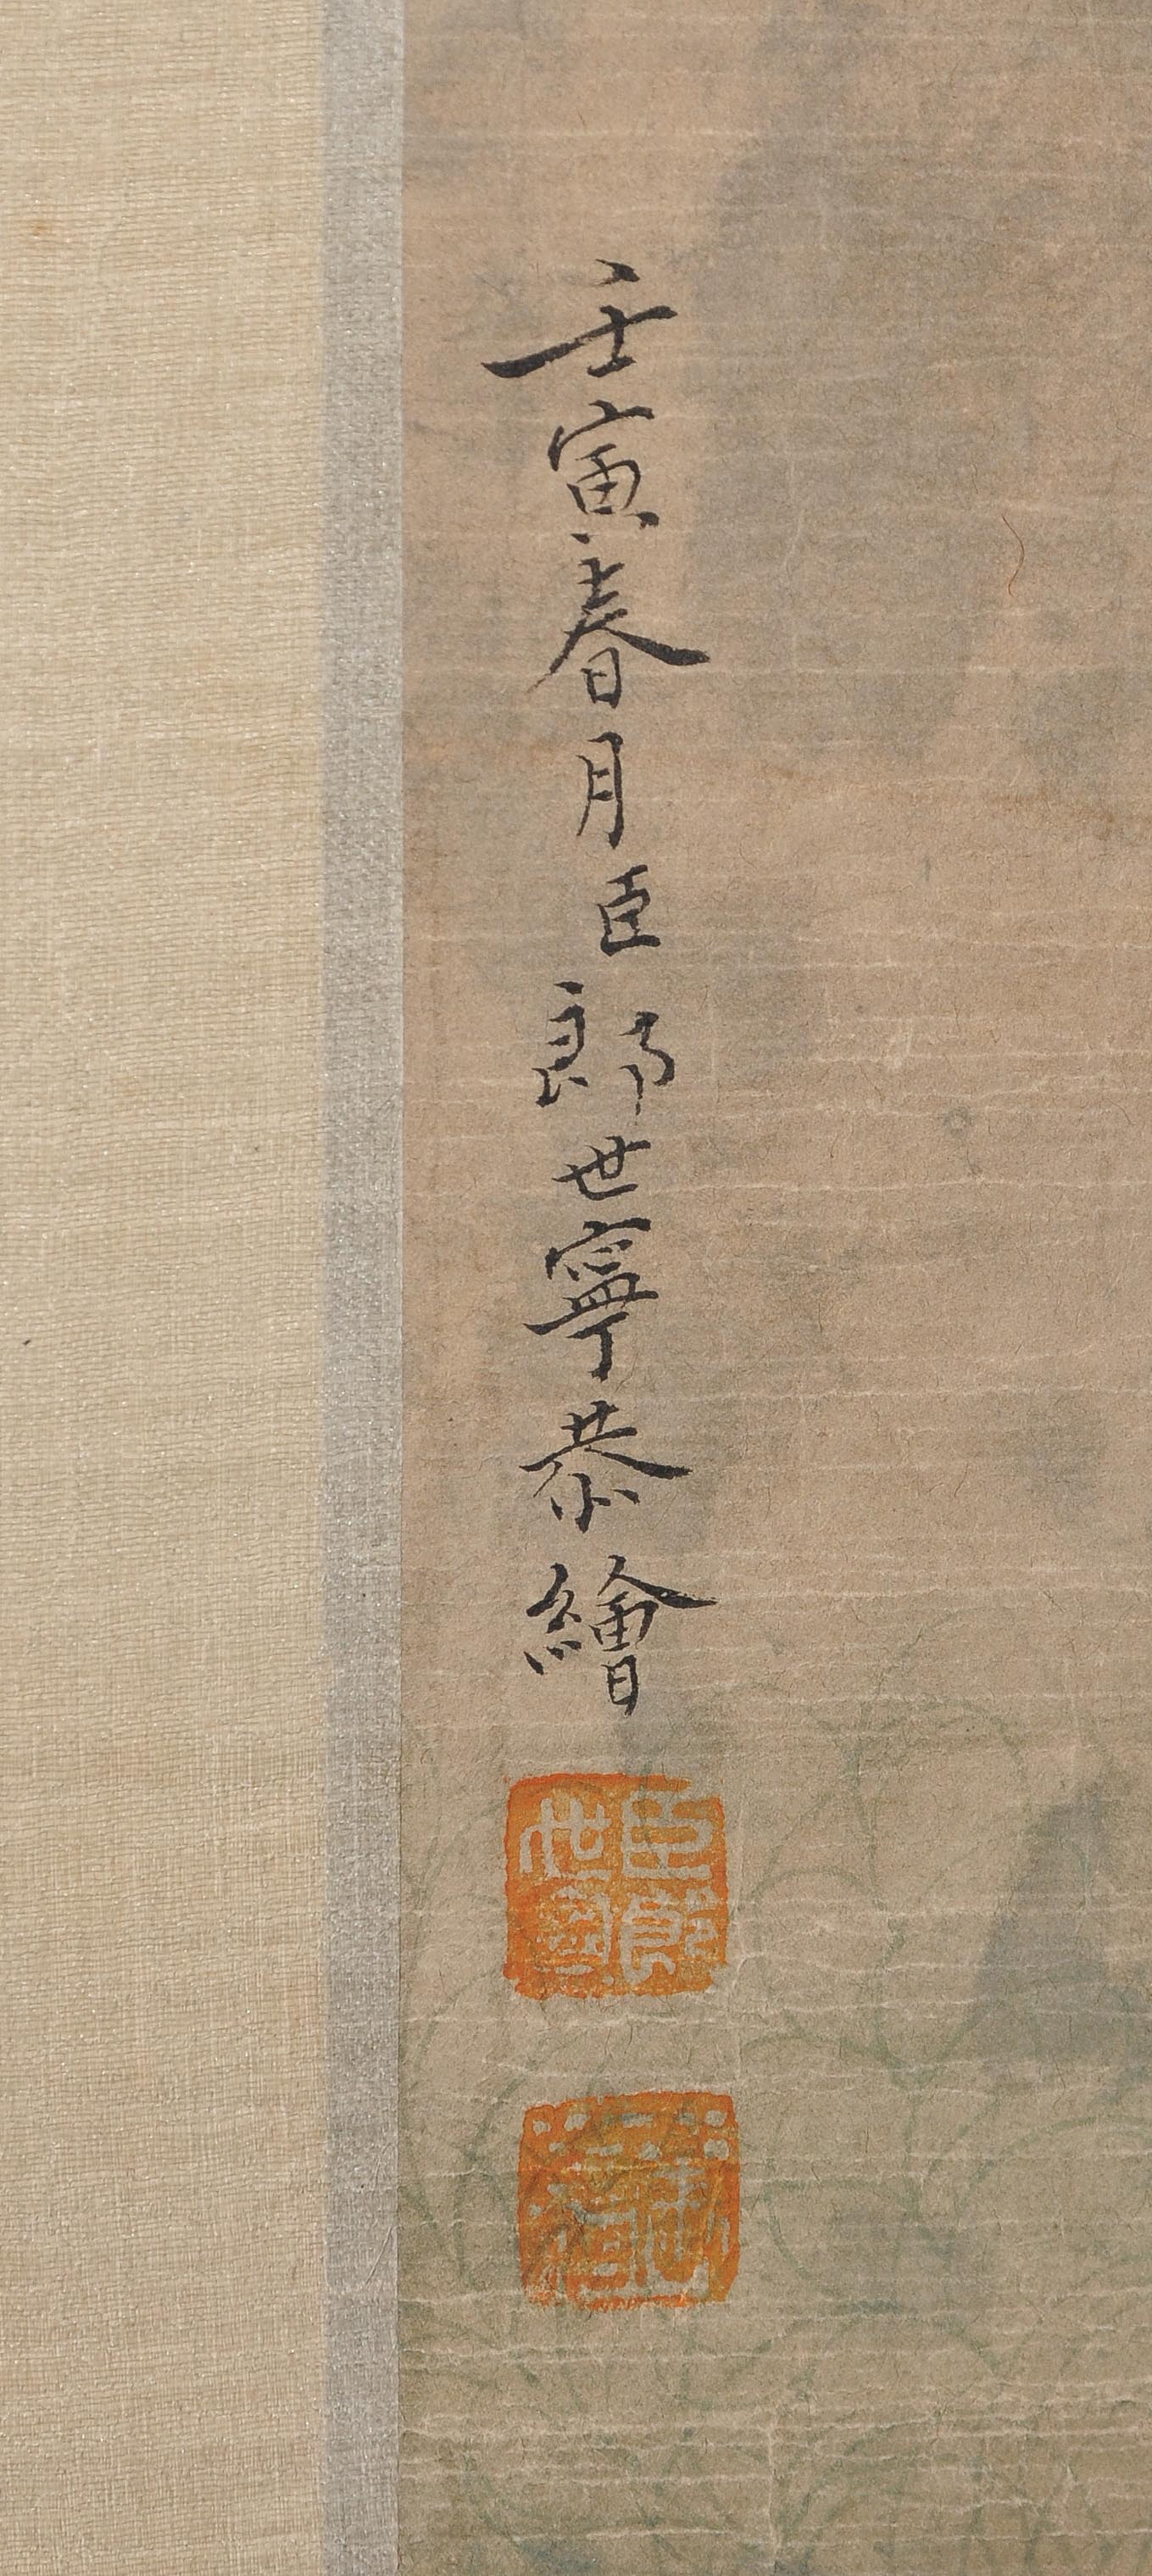 壬寅春月臣郎世寧恭繪
臣郎世寧